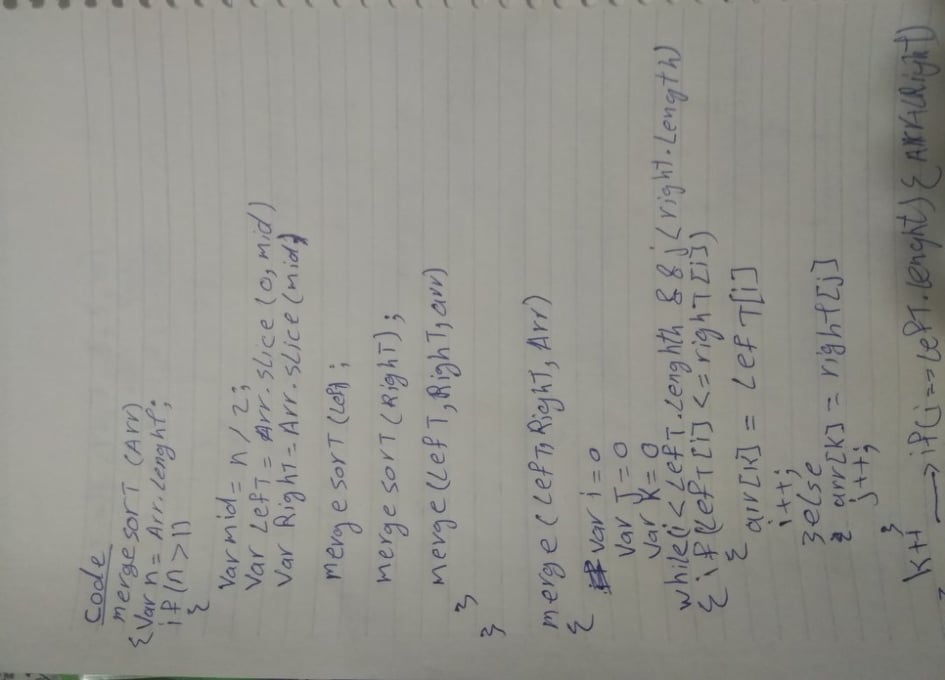 Code
mergesort (Arr)
{Var n = Arr.Lenght;
if (n > 1)
{
Var mid = n / 2;
Var Left = Arr.slice (0, mid)
Var Right = Arr.slice (mid)
mergesort (Left;
mergesort (Right);
merge (Left, Right, arr)
}
}
merge (Left, Right, Arr)
{
var i = 0
Var J = 0
Var K = 0
while(i < Left.Length && j < right.Length)
{ if (Left[i] <= right[i])
{ arr[k] = Left[i]
i++;
}else
{ arr[k] = right[j]
j++;
}
k++ → if(i == Left.lenght) {